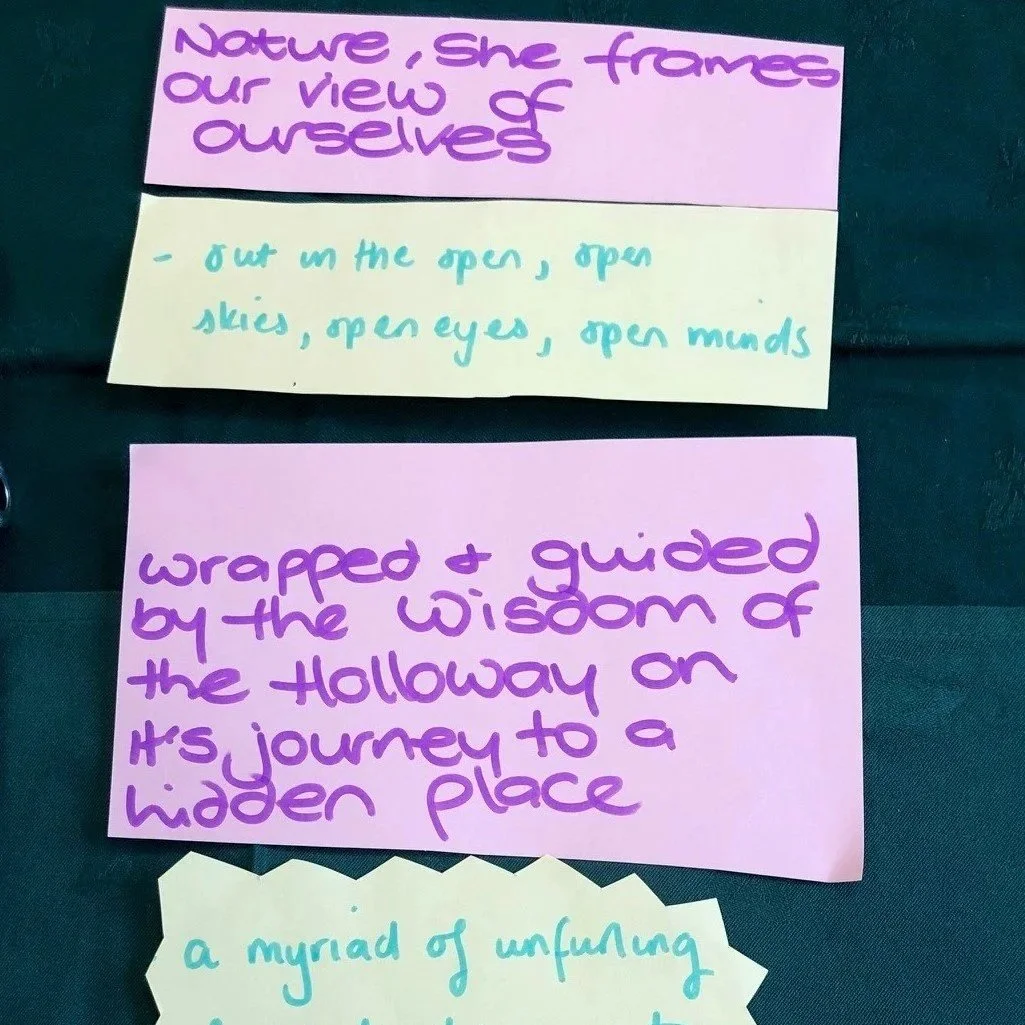 Nature, She frames
our view of
ourselves
- out in the open, open
skies, open eyes, open minds
wrapped & guided
by the Wisdom of
the Holloway on
it's journey to a
hidden place
a myriad of unfurling